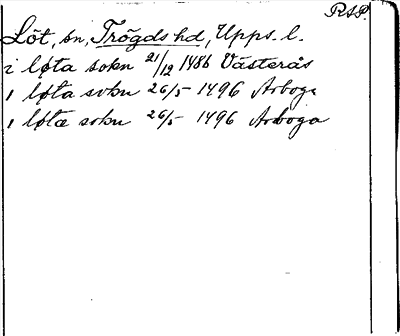 RAP.
Löt, sn, Trögds hd, Upps. l.
i løta sokn 21/12 1486 Västerås
i løta sokn 26/5 1496 Arboga
i løtæ sokn 26/5 1496 Arboga